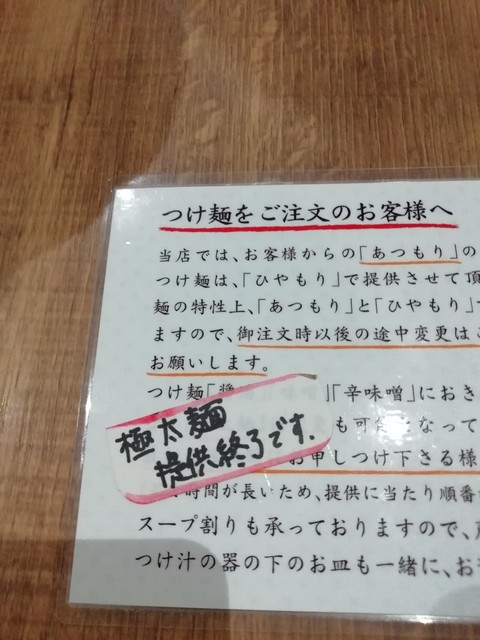 つけ麺をご注文のお客様へ
当店では、お客様からの「あつもり」の
つけ麺は、「ひやもり」で提供させて頂
麺の特性上、「あつもり」と「ひやもり」で
ますので、御注文時以後の途中変更はご
お願いします。
つけ麺「醤 」「辛味噌」におき
極太麺
提供終了です.
も可能となって
お申しつけ下さる様
時間が長いため、提供に当たり順番
スープ割りも承っておりますので、
つけ汁の器の下のお皿も一緒に、お